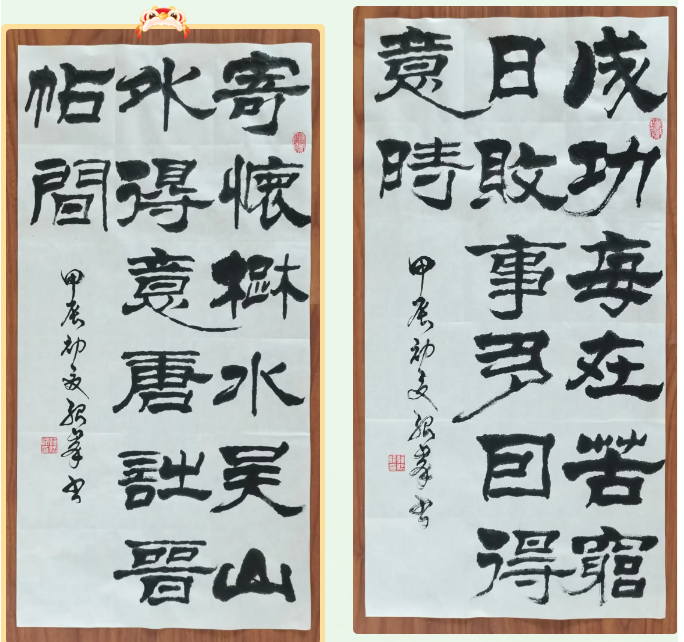 寄懷楚水吳山
外得意唐詩晉
帖間
甲辰初夏峯书
成功每在苦窮
日敗事多因得
意時
甲辰初夏峯书